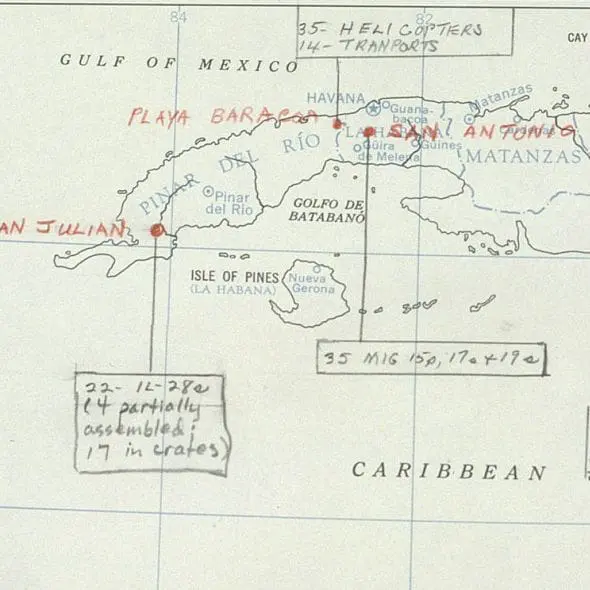 84
82
35- HELICOPTERS
14- TRANPORTS
CAY
GULF OF MEXICO
HAVANA
Guana-
bacoa
Matanzas
PLAYA BARACOA
LA HABANA
SAN ANTONIO
Cardenas
Güira
de Melena
Güines
MATANZAS
PINAR DEL RÍO
Pinar
del Río
GOLFO DE
BATABANÓ
AN JULIAN
ISLE OF PINES
(LA HABANA)
Nueva
Gerona
35 MIG 15s, 17s + 19s
22- IL-28s
(4 partially
assembled;
17 in crates)
CARIBBEAN